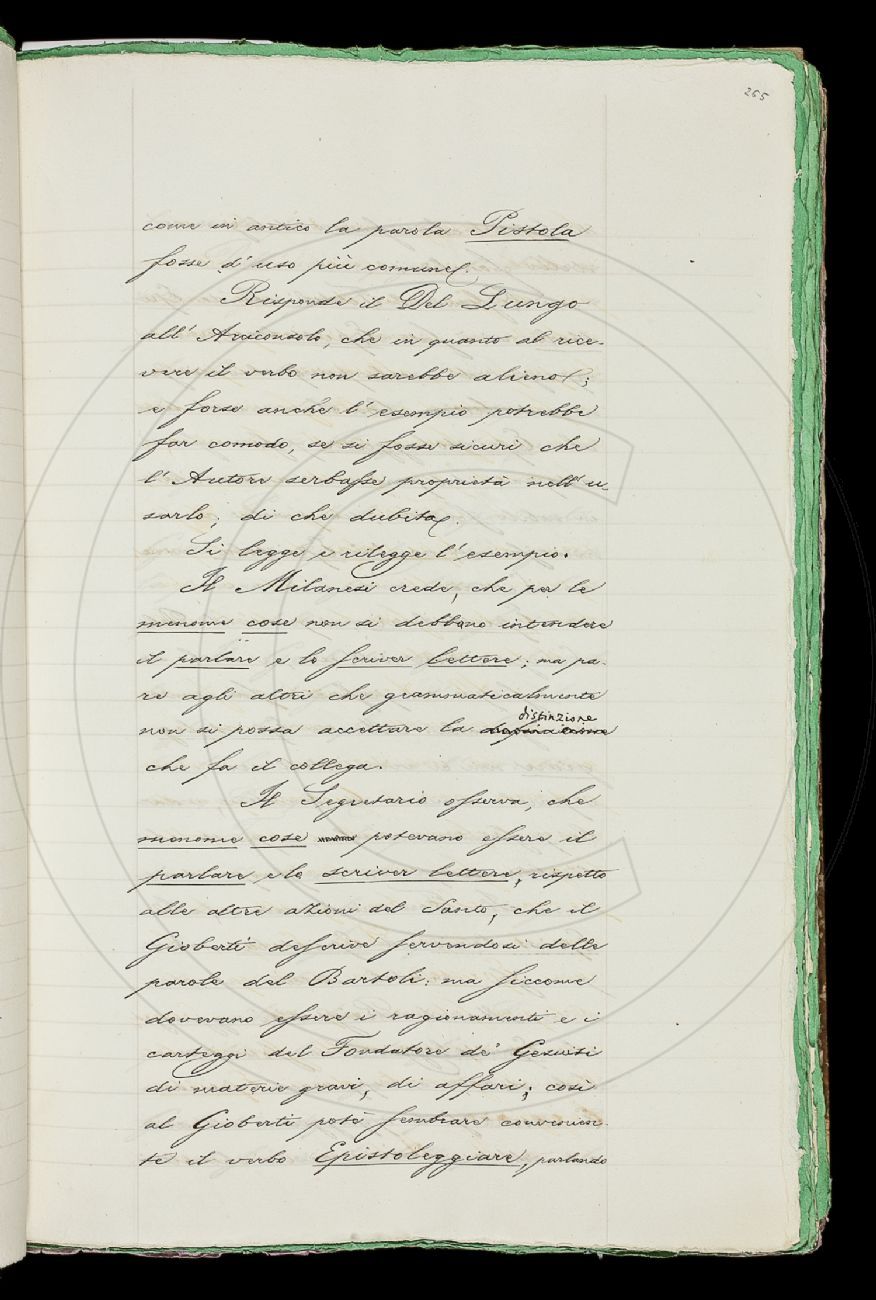 265
come in antico la parola Pistola
fosse d'uso più comune.
Risponde il Del Lungo
all'Arciconsolo, che in quanto al rice-
vere il verbo non sarebbe alieno;
e forse anche l'esempio potrebbe
far comodo, se si fosse sicuri che
l'Autore serbasse proprietà nell'u-
sarlo; di che dubita.
Si legge e rilegge l'esempio.
Il Milanesi crede, che per le
menome cose non si debbano intendere
il parlare e lo scriver lettere; ma pa-
re agli altri che grammaticalmente
distinzione
non si possa accettare la
che fa il collega.
Il Segretario osserva, che
menome cose potevano essere il
parlare e lo scriver lettere, rispetto
alle altre azioni del Santo, che il
Gioberti descrive servendosi delle
parole del Bartoli: ma siccome
dovevano essere i ragionamenti e i
carteggi del Fondatore de' Gesuiti
di materie gravi, di affari; così
al Gioberti potè sembrare convenien-
te il verbo Epistoleggiare, parlando